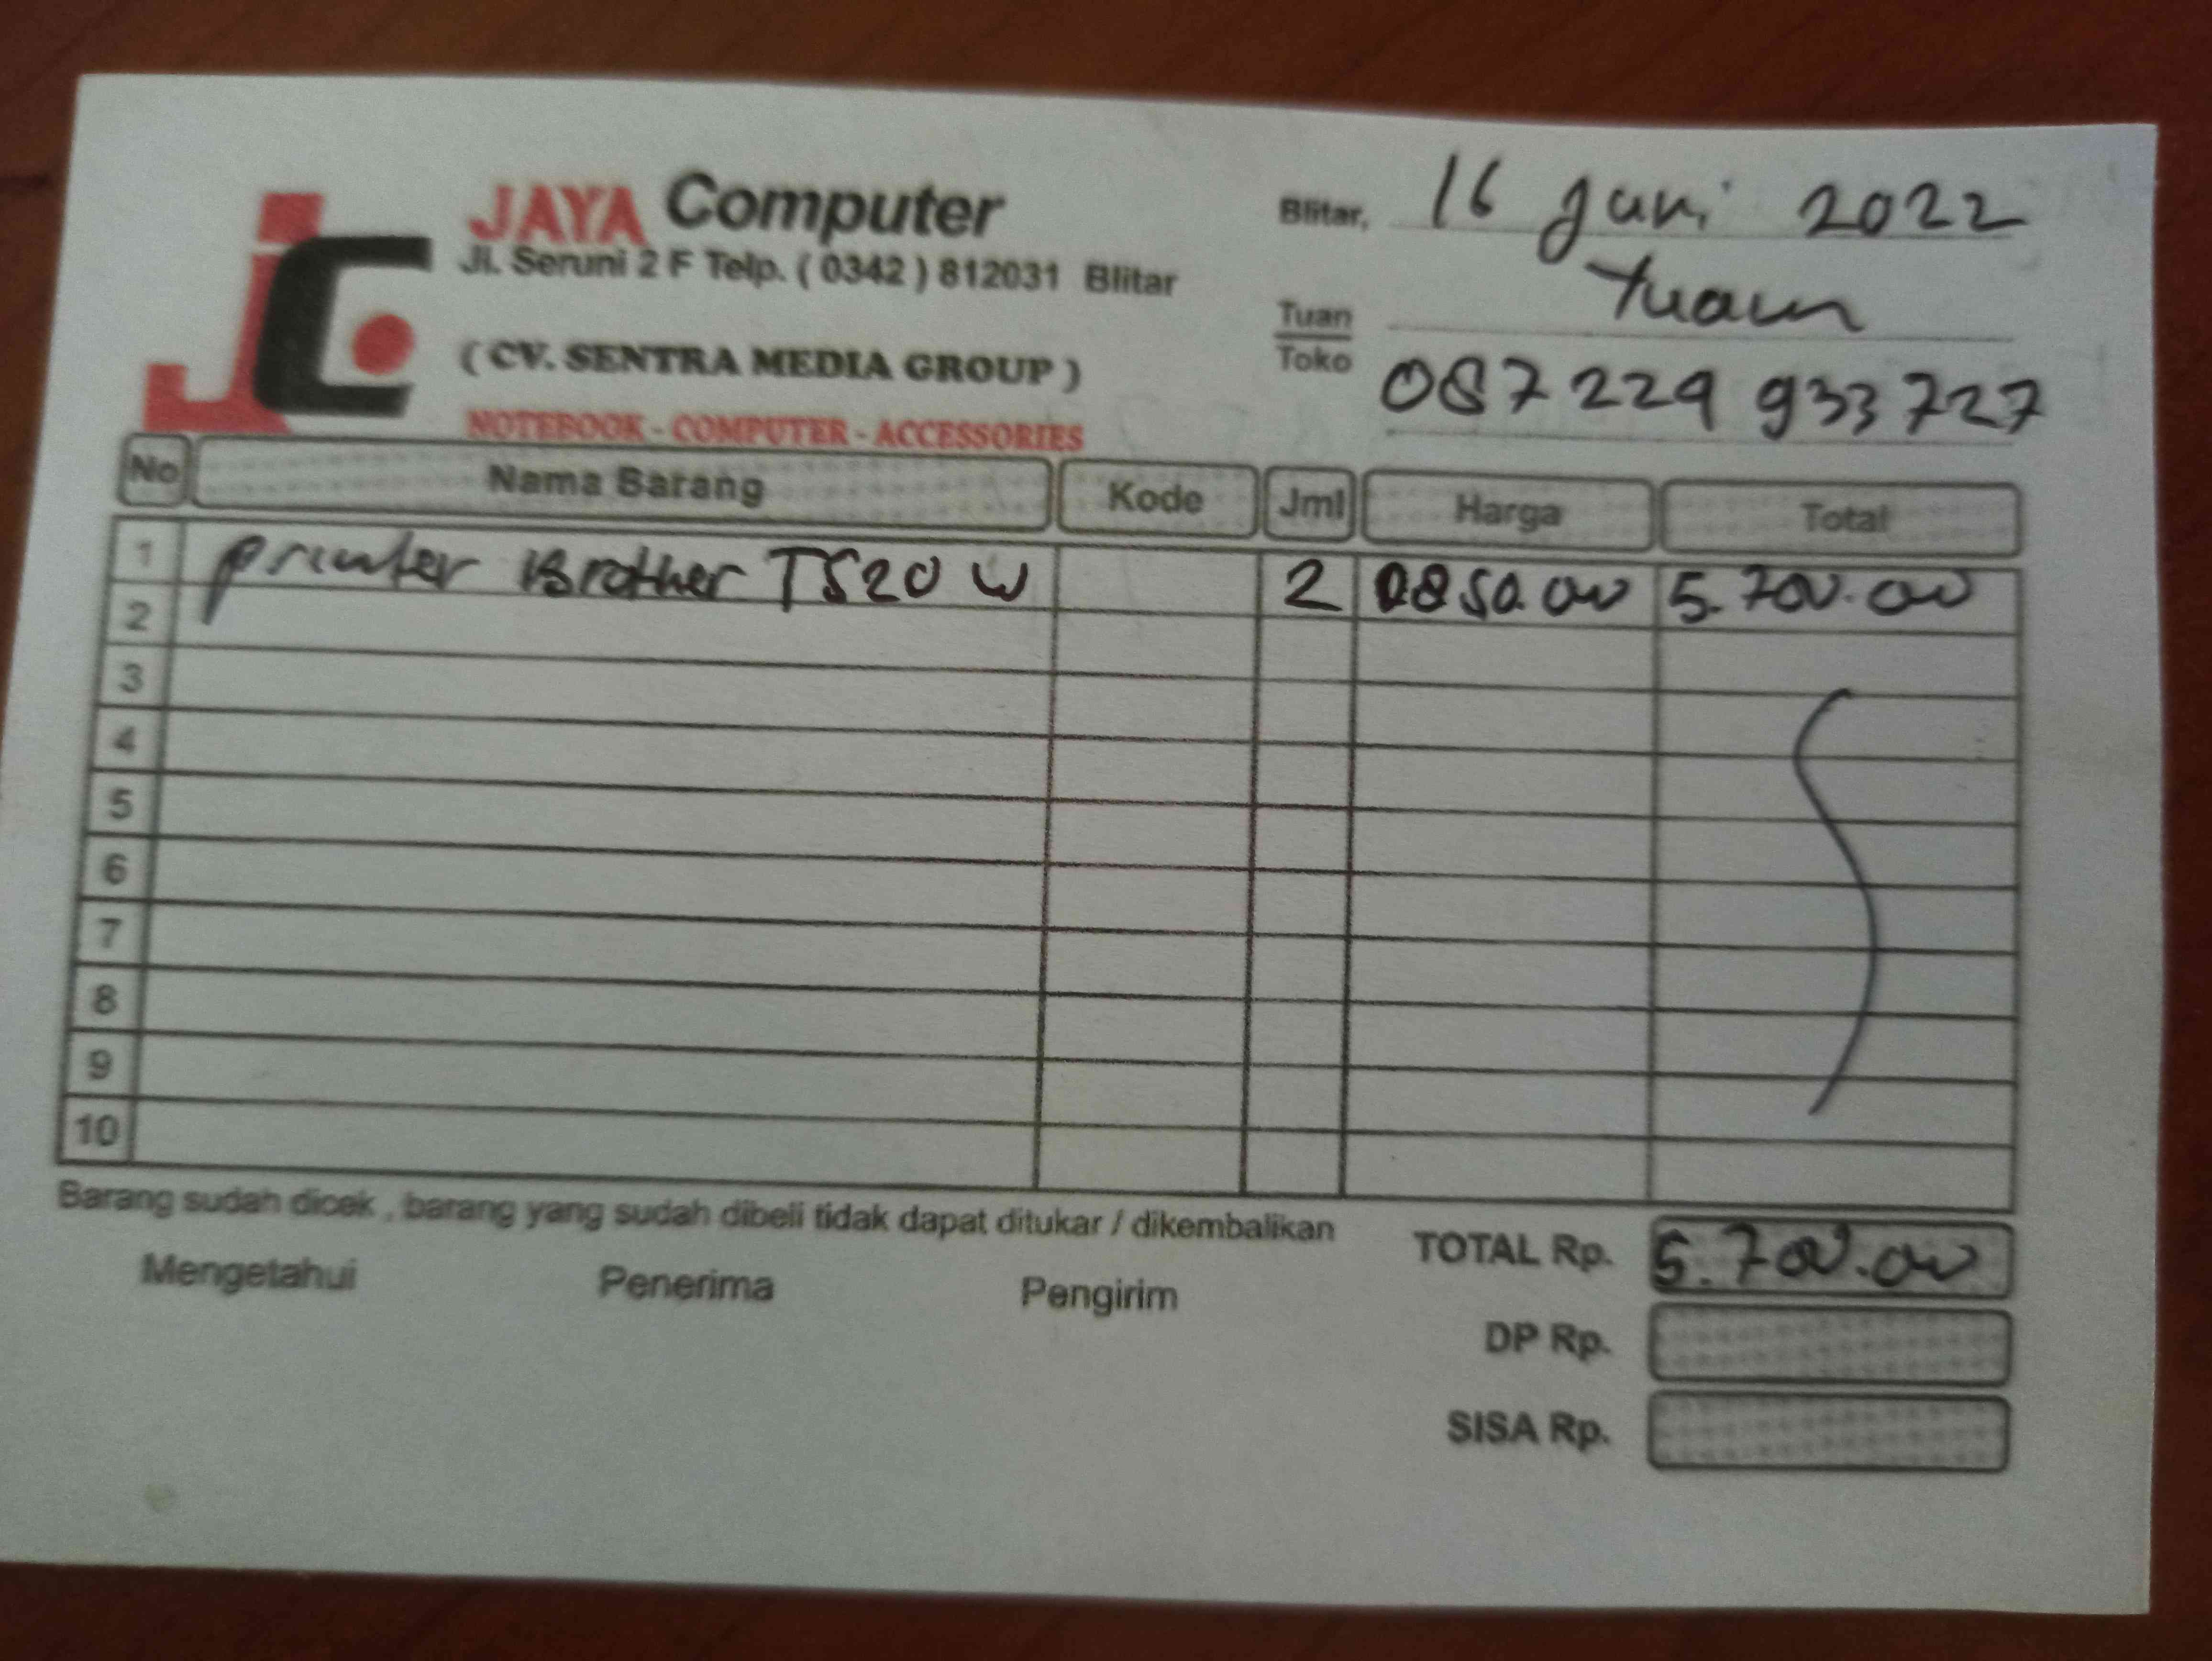 JAYA Computer
Jl. Seruni 2 F Telp. ( 0342 ) 812031 Blitar
( CV. SENTRA MEDIA GROUP )
NOTEBOOK - COMPUTER - ACCESSORIES
Blitar, 16 Juni 2022
Tuan
Toko
087229933727
No Nama Barang Kode Jml Harga Total
1 printer Brother T520 W 2 2850.000 5.700.000
2
3
4
5
6
7
8
9
10
Barang sudah dicek , barang yang sudah dibeli tidak dapat ditukar / dikembalikan
Mengetahui Penerima Pengirim
TOTAL Rp. 5.700.000
DP Rp.
SISA Rp.